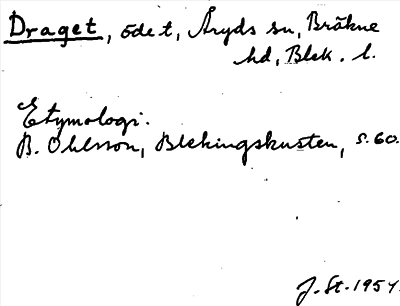 Draget, ödet, Åryds sn, Bräkne
hd, Blek. l.
Etymologi.
B. Ohlsson, Blekingskusten, s. 60.
J. St. 1954.